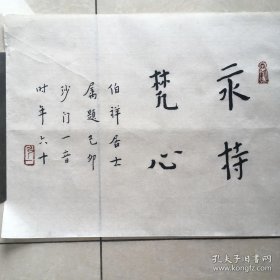 永持
梵心
伯祥居士
属题己卯
沙门一音
时年六十
孔夫子旧书网